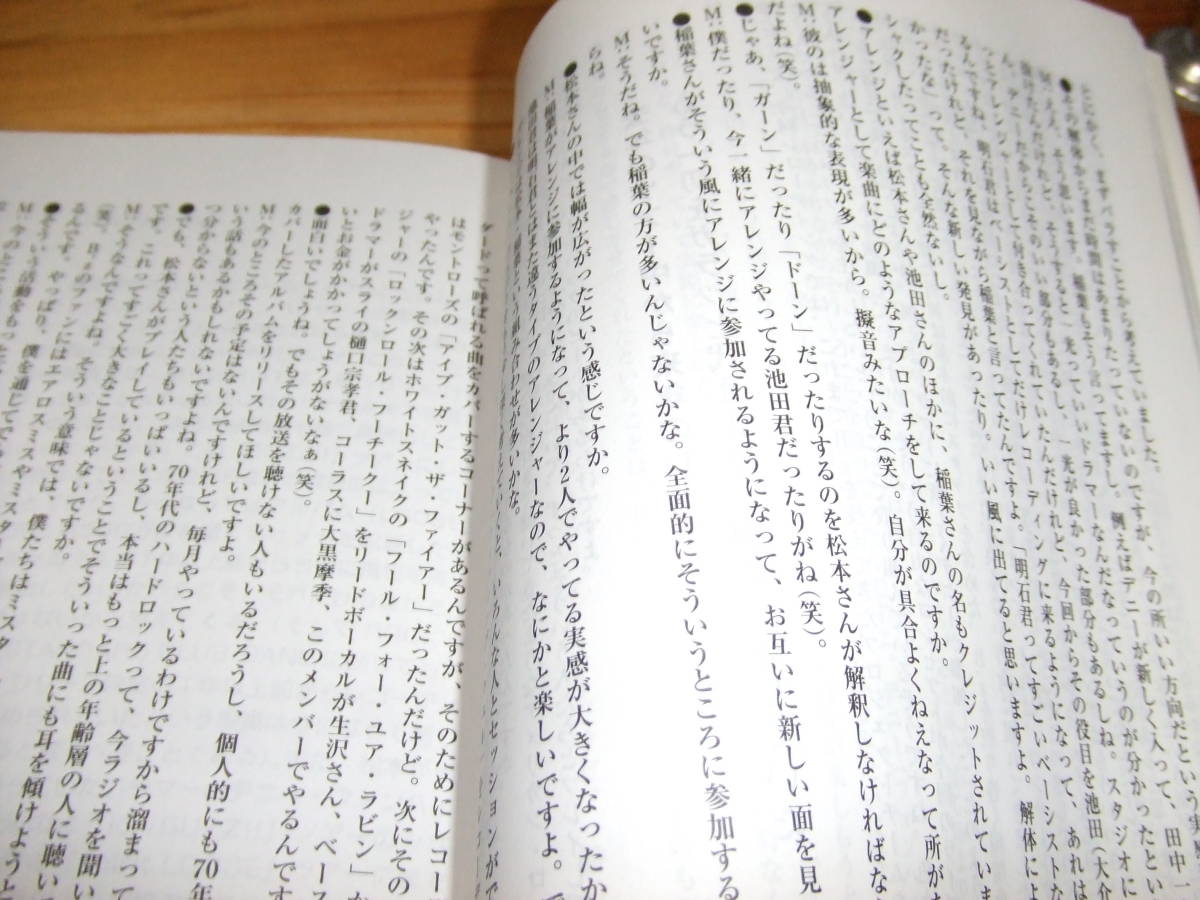 とにかく、まずバラすことから考えていました。
●その解体からまだ時間はあまりたっていないのですが、今の所いい方向だという実感
M：ええ、そう思います。稲葉もそう言ってますし。例えばデニーが新しく入って、田中一光
を抜けたんだけれど、そうすると「光っていいドラマーなんだなっていうのが分かったとい
ん。デニーだからこそのいい部分もあるし、一光が良かった部分もあるしね。スタジオに
っとアレンジャーと付き合ってくれていたんだけれど、今回からその役目を池田（大介
るんですね。明石君はベーシストとしてだけレコーディングに来るようになって、あれは
だったけれど、それを見ながら稲葉と言ってたんですよ。「明石君ってすごいベーシストな
かったな」って。そんな新しい発見があったり。いい風に出てると思いますよ。解体によ
シャクしたってことも全然ないし。
●アレンジといえば松本さんや池田さんのほかに、稲葉さんの名もクレジットされていま
アレンジャーとして楽曲にどのようなアプローチをして来るのですか。
M：彼のは抽象的な表現が多いから。擬音みたいな（笑）。自分が具合よくねえなって所があ
だよね（笑）。
●じゃあ、「ガーン」だったり「ドーン」だったりするのを松本さんが解釈しなければな
M：僕だったり、今一緒にアレンジやってる池田君だったりがね（笑）。
●稲葉さんがそういう風にアレンジに参加されるようになって、お互いに新しい面を見
いですか。
M：そうだね。でも稲葉の方が多いんじゃないかな。全面的にそういうところに参加する
らね。
●松本さんの中では幅が広がったという感じですか。
M：稲葉がアレンジに参加するようになって、より2人でやってる実感が大きくなったか
池田君は明石君とはまた違うタイプのアレンジャーなので、なにかと楽しいですよ。で
稲葉という組み合わせが多いかな。
いろんな人とセッションがで
ゲードって呼ばれる曲をカバーするコーナーがあるんですが、そのためにレコー
はモントローズの「アイブ・ガット・ザ・ファイアー」だったんだけど。次にその
やったんです。その次はホワイトスネイクの「フール・フォー・ユア・ラビン」か
ジャーの「ロックンロール・フーチークー」をリードボーカルが生沢さん、ベース
ドラマーがスライの樋口宗孝君、コーラスに大黒摩季、このメンバーでやるんです
いとお金がかかってしょうがないなぁ（笑）。
●面白いでしょうね。でもその放送を聴けない人もいるだろうし、個人的にも70年
カバーしたアルバムをリリースしてほしいですよ。
M：今のところその予定はないんですけれど、毎月やっているわけですから溜まって
いう話もあるかもしれないですよね。70年代のハードロックって、今ラジオを聞い
つ分からないという人たちもいっぱいいるし、本当はもっと上の年齢層の人に聴い
●でも、松本さんがプレイしているということでそういった曲にも耳を傾けようと
です。これってすごく大きなことじゃないですか。
M：そうなんですよね。そういう意味では、僕たちはミスタ
（笑）、B'zのファンにはエアロスミスやミスタ
るんです。やっぱり、僕を通じてで
●そういう活動をもっと
M：今のところ